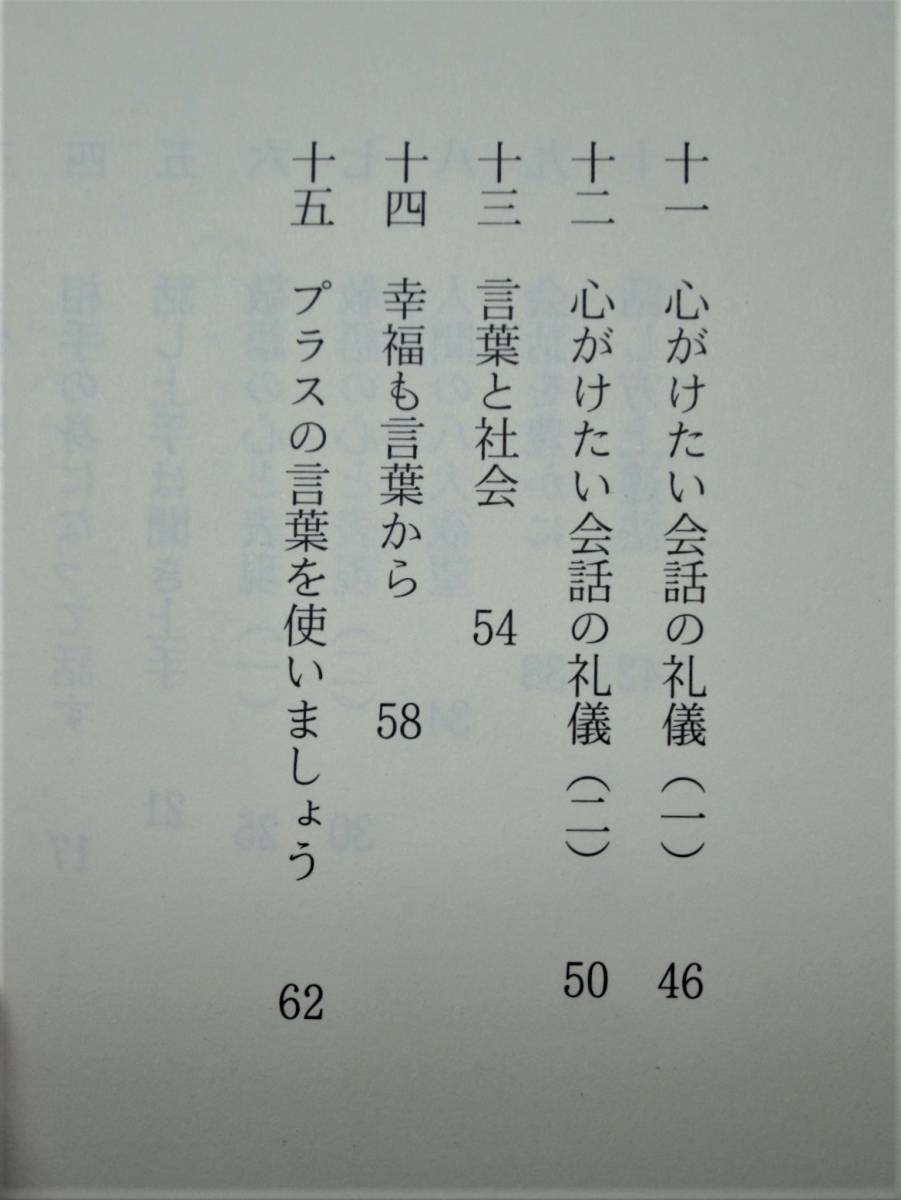 十一 心がけたい会話の礼儀（一） 46
十二 心がけたい会話の礼儀（二） 50
十三 言葉と社会 54
十四 幸福も言葉から 58
十五 プラスの言葉を使いましょう 62